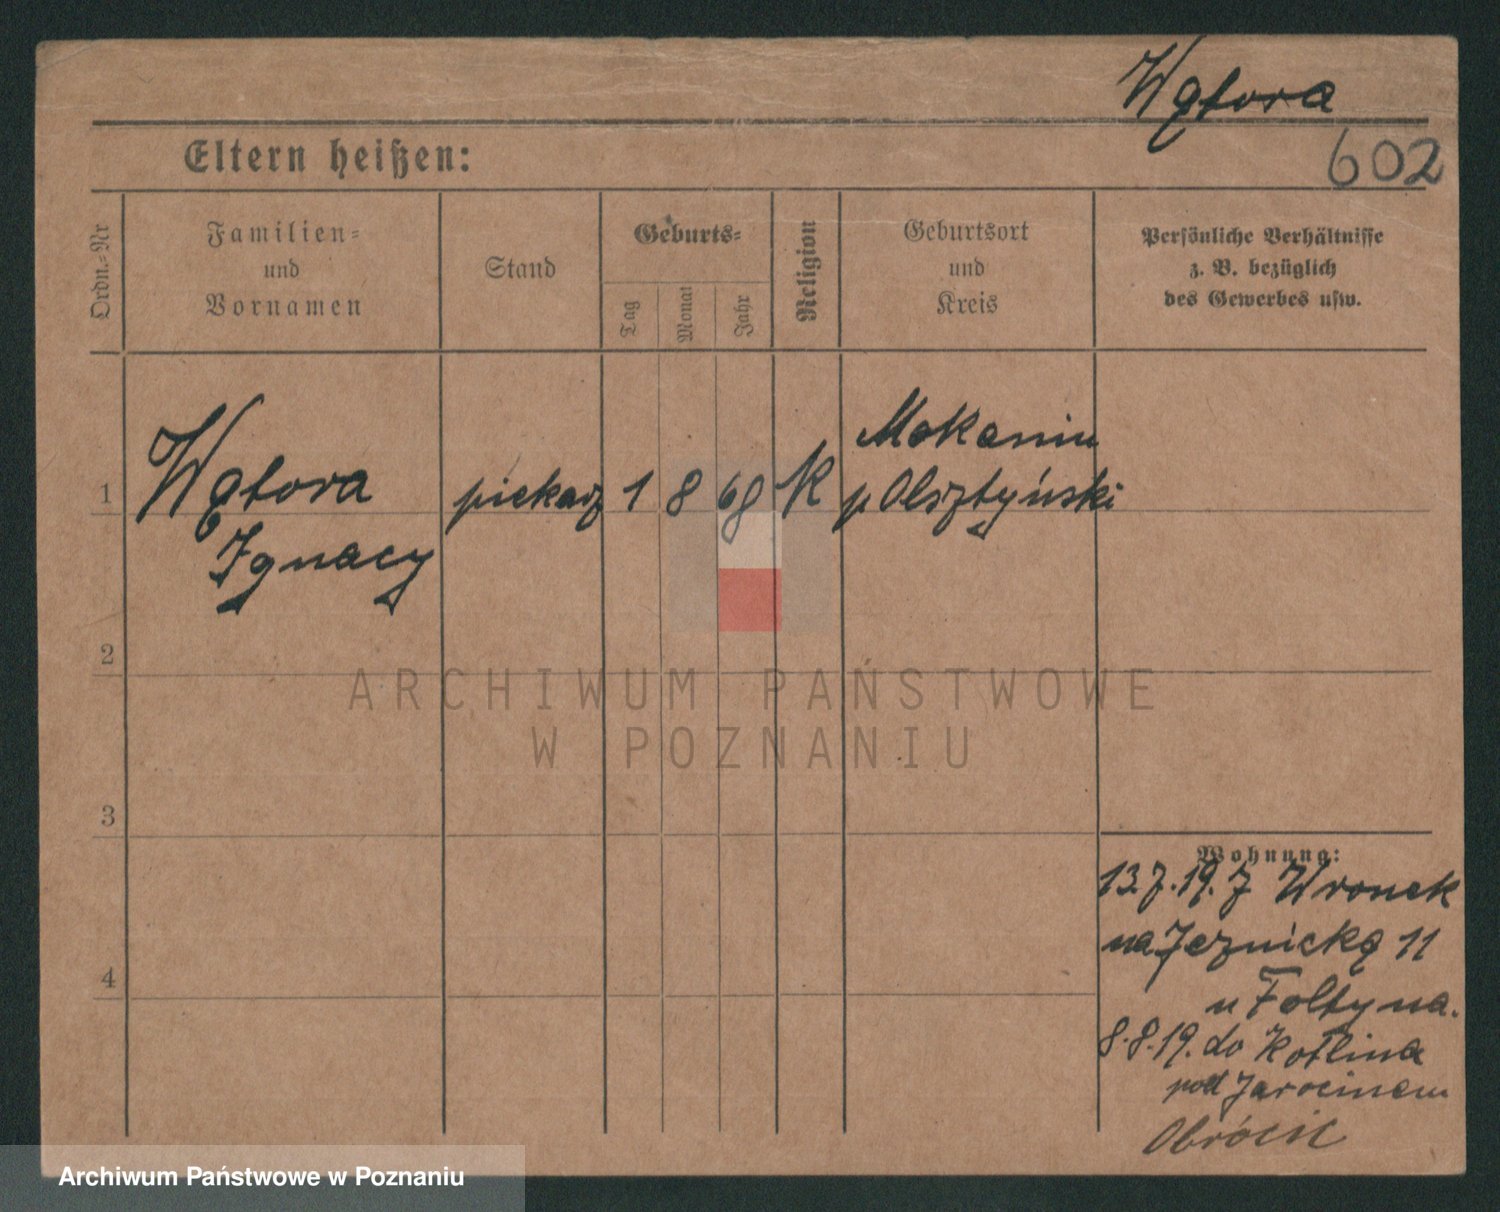 Wątora
602
Eltern heißen:
Ordn.-Nr
Familien-
und
Vornamen
Stand
Geburts-
Tag
Monat
Jahr
Religion
Geburtsort
und
Kreis
Persönliche Verhältnisse
z. B. bezüglich
des Gewerbes usw.
1
Wątora
Ignacy
piekarz
1 8 68
K
Mokaniu
p Olsztyński
2
3
4
Wohnung:
13.7.19. z Wronek
na Jeznicką 11
u Foltyna.
8.8.19. do Kotlina
pod Jarocinem
Obrócić
ARCHIWUM PAŃSTWOWE
W POZNANIU
Archiwum Państwowe w Poznaniu